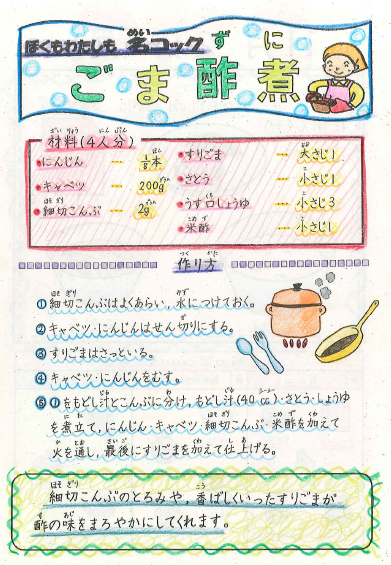 ぼくもわたしも 名コック
ごま酢煮
材料(4人分)
・にんじん … 1/8本
・キャベツ … 200g
・細切こんぶ … 2g
・すりごま … 大さじ1
・さとう … 小さじ1
・うす口しょうゆ … 小さじ3
・米酢 … 小さじ1
作り方
①細切こんぶはよくあらい、水につけておく。
②キャベツ・にんじんはせん切りにする。
③すりごまはさっといる。
④キャベツ・にんじんをむす。
⑤①をもどし汁とこんぶに分け、もどし汁(40cc)・さとう・しょうゆ
を煮立て、にんじん・キャベツ・細切こんぶ・米酢を加えて
火を通し、最後にすりごまを加えて仕上げる。
細切こんぶのとろみや、香ばしくいったすりごまが
酢の味をまろやかにしてくれます。